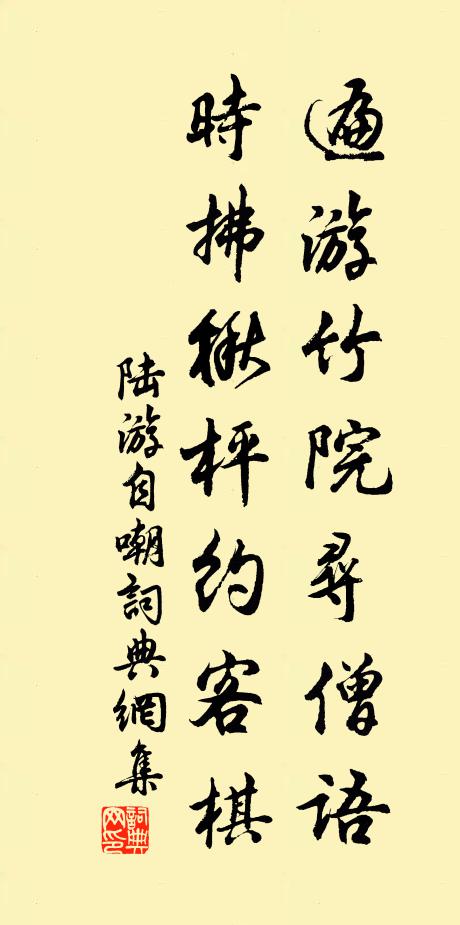 遍游竹院尋僧語
時拂楸枰約客棋
陆游自嘲詞典網集
詞典网印